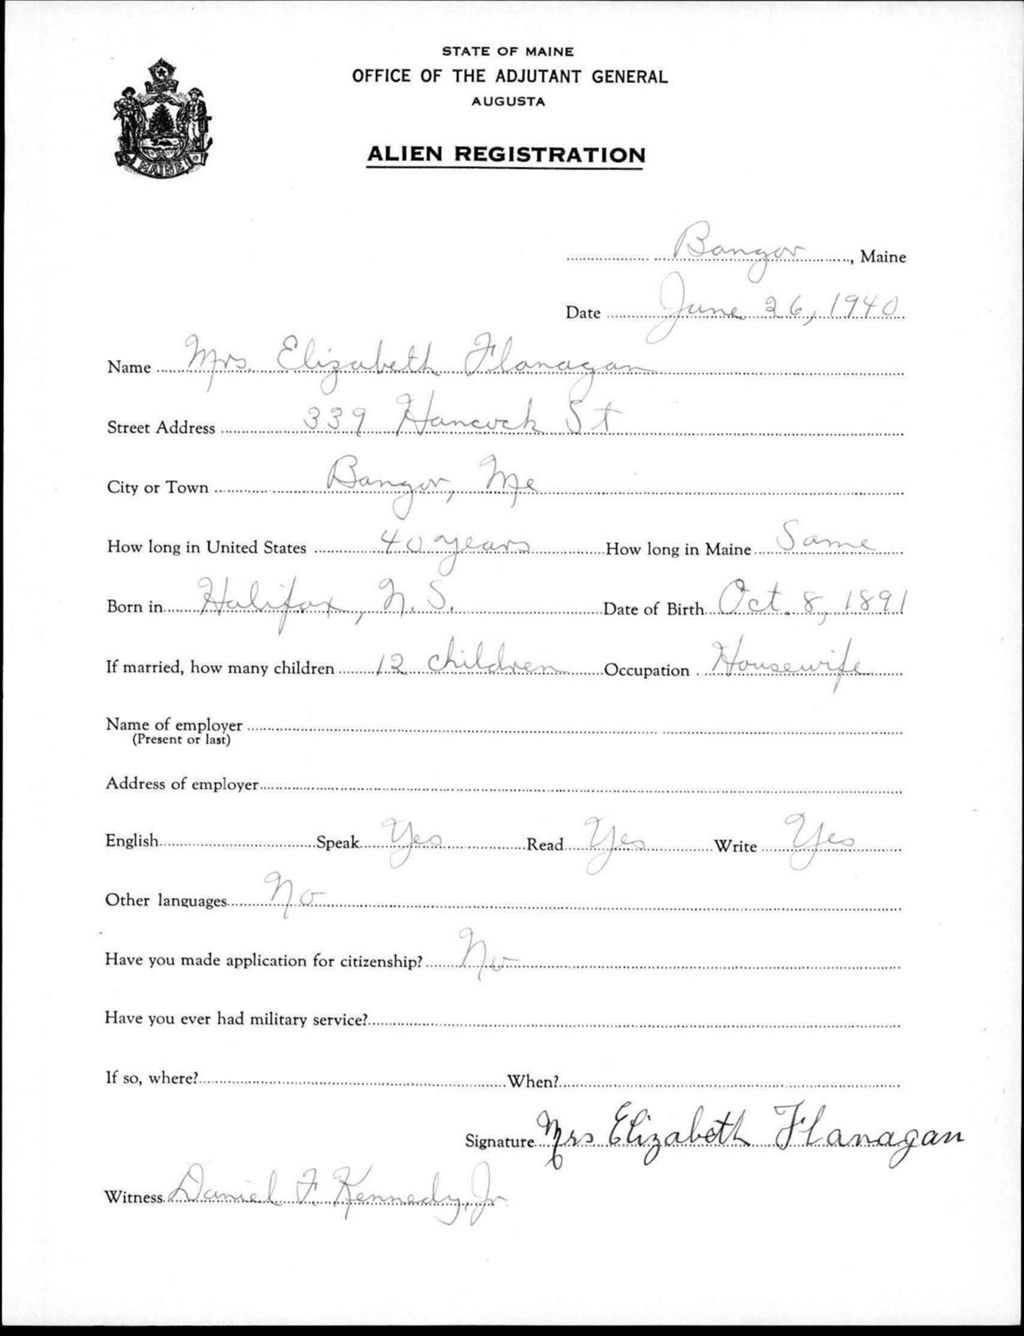 STATE OF MAINE
OFFICE OF THE ADJUTANT GENERAL
AUGUSTA
ALIEN REGISTRATION
MAINE
Bangor, Maine
Date June 26, 1940
Name Mrs. Elizabeth Flanagan
Street Address 339 Hancock St
City or Town Bangor, Me
How long in United States 40 years How long in Maine Same
Born in Halifax, N.S. Date of Birth Oct. 8, 1891
If married, how many children 12 children Occupation Housewife
Name of employer
(Present or last)
Address of employer
English Speak Yes Read Yes Write Yes
Other languages No
Have you made application for citizenship? No
Have you ever had military service?
If so, where? When?
Signature Mrs Elizabeth Flanagan
Witness Daniel F. Kennedy, Jr